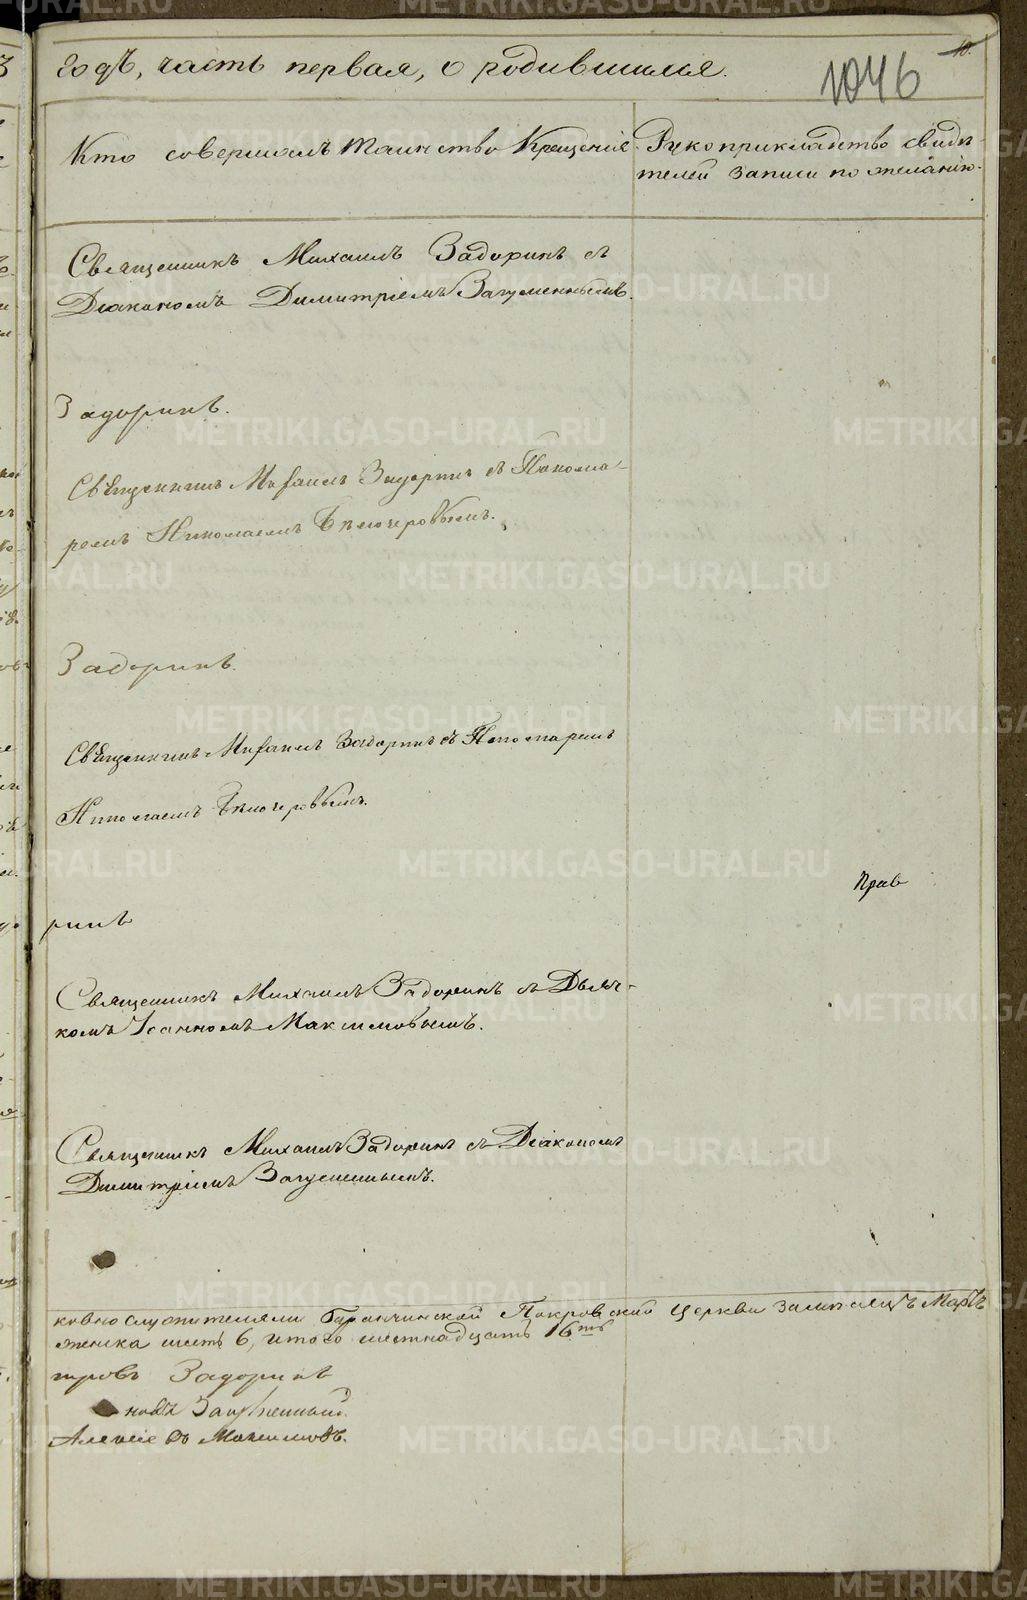 годъ, часть первая, о родившихся.
10.
1046
Кто совершалъ таинство Крещенія.
Рукоприкладство свидѣ-
телей записи по желанію.
Священникъ Михаилъ Задоринъ съ
Діакономъ Димитріемъ Загуменнымъ.
Задоринъ.
Священникъ Михаилъ Задоринъ съ Понома-
ремъ Николаемъ
Задоринъ.
Священникъ Михаилъ Задоринъ съ Пономаремъ
Николаемъ
Прав
ринъ
Священникъ Михаилъ Задоринъ съ Дьяч-
комъ Іоанномъ Максимовымъ.
Священникъ Михаилъ Задоринъ съ Діакономъ
Димитріемъ Загуменнымъ.
ковнослужителями Баранчинской Покровской церкви за мѣсяцъ Мартъ
женска шесть 6, итого шестнадцать 16
Задоринъ
новъ Загуменный.
Алексіевъ Максимовъ.
METRIKI.GASO-URAL.RU